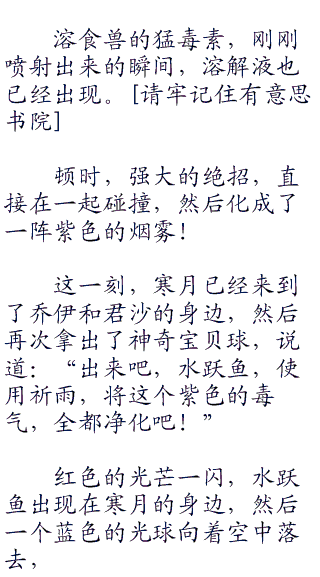 溶食兽的猛毒素，刚刚
喷射出来的瞬间，溶解液也
已经出现。[请牢记住有意思
书院]
顿时，强大的绝招，直
接在一起碰撞，然后化成了
一阵紫色的烟雾！
这一刻，寒月已经来到
了乔伊和君沙的身边，然后
再次拿出了神奇宝贝球，说
道：“出来吧，水跃鱼，使
用祈雨，将这个紫色的毒
气，全都净化吧！”
红色的光芒一闪，水跃
鱼出现在寒月的身边，然后
一个蓝色的光球向着空中落
去，